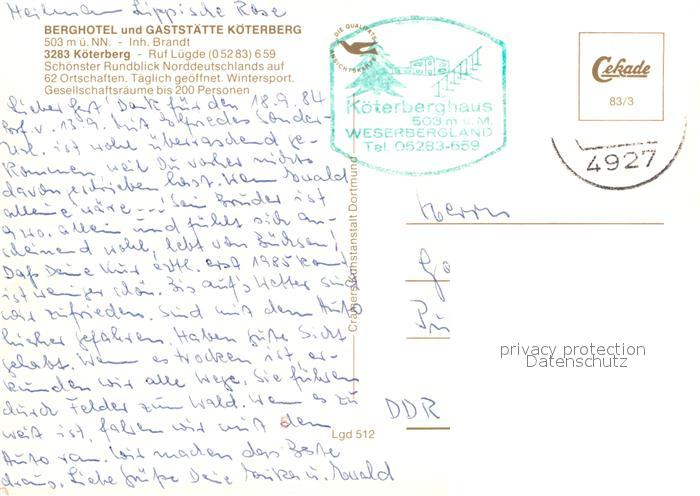 Lippische Rose
BERGHOTEL und GASTSTÄTTE KÖTERBERG
503 m ü. NN. - Inh. Brandt
3283 Köterberg - Ruf Lügde (05283) 659
Schönster Rundblick Norddeutschlands auf
62 Ortschaften. Täglich geöffnet. Wintersport.
Gesellschaftsräume bis 200 Personen
Lieber Dank für den 18.9.84
v. 13.9. Mit
ist wohl überraschend ge-
kommen, weil Du vorher nichts
davon geschrieben hast. Wenn Ewald
alleine wäre --- ! Sein Bruder ist
allein und fühlt sich an-
scheinend wohl, lebt von Büchsen!
Daß Deine Kur evtl. erst 1985 kommt
ist weniger schön. Bis auf's Wetter sind
wir zufrieden. Sind mit dem Auto
hierher gefahren. Haben gute Sicht
gehabt. Wenn es trocken ist, er-
kunden wir alle Wege. Sie führen
durch Felder zum Wald. Wenn es zu
weit ist, fahren wir mit dem
Auto ran. Wir machen das Beste
draus. Liebe Grüße Deine u. Ewald
DIE QUALITÄTS
ANSICHTSKARTE
Köterberghaus
503 m ü. M.
WESERBERGLAND
Tel. 05283-659
Cramers Kunstanstalt Dortmund
Lgd 512
Cekade
83/3
4927
Herrn
DDR
privacy protection
Datenschutz